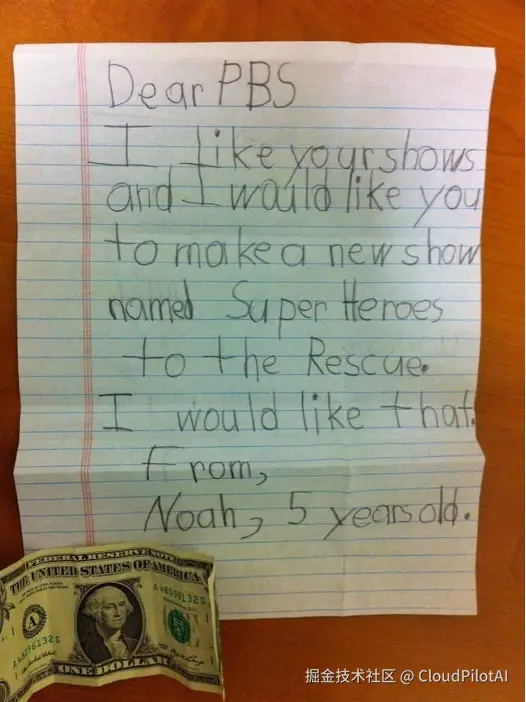 Dear PBS
I like your shows
and I would like you
to make a new show
named Super Heroes
to the Rescue.
I would like that.
From,
Noah, 5 years old.
FEDERAL RESERVE NOTE
THE UNITED STATES OF AMERICA
A
A 48096132 G
A 48096132 G
ONE DOLLAR
掘金技术社区 @ CloudPilotAI